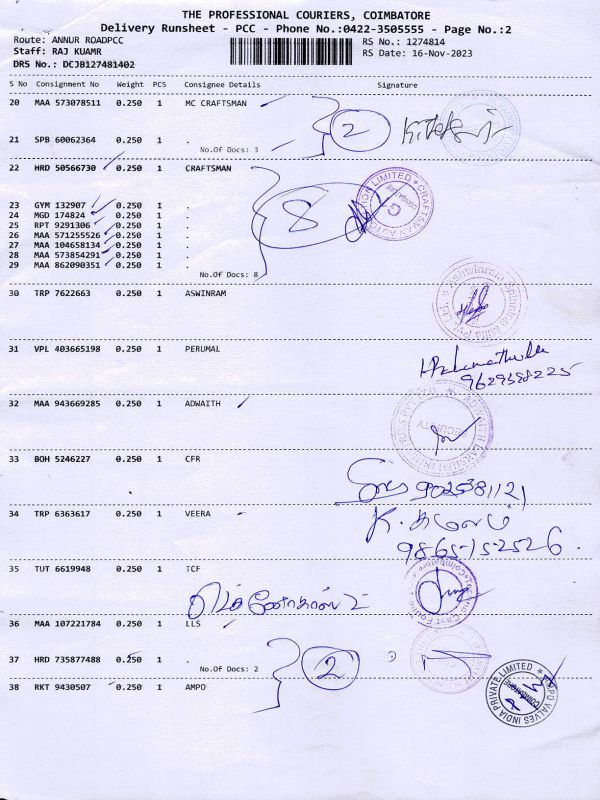 THE PROFESSIONAL COURIERS, COIMBATORE
Delivery Runsheet - PCC - Phone No.:0422-3505555 - Page No.:2
Route: ANNUR ROADPCC
RS No.: 1274814
Staff: RAJ KUAMR
RS Date: 16-Nov-2023
DRS No.: DCJB127481402
S No Consignment No Weight PCS Consignee Details Signature
20 MAA 573078511 0.250 1 MC CRAFTSMAN
2
21 SPB 60062364 0.250 1 .
No.Of Docs: 3
22 HRD 50566730 0.250 1 CRAFTSMAN
23 GYM 132907 0.250 1 .
24 MGD 174824 0.250 1 .
8
25 RPT 9291306 0.250 1 .
26 MAA 571255526 0.250 1 .
27 MAA 104658134 0.250 1 .
28 MAA 573854291 0.250 1 .
29 MAA 862090351 0.250 1 .
No.Of Docs: 8
30 TRP 7622663 0.250 1 ASWINRAM
31 VPL 403665198 0.250 1 PERUMAL
32 MAA 943669285 0.250 1 ADWAITH
SECURITY
33 BOH 5246227 0.250 1 CFR
9025381121
34 TRP 6363617 0.250 1 VEERA
9865152526.
35 TUT 6619948 0.250 1 TCF
36 MAA 107221784 0.250 1 LLS
37 HRD 735877488 0.250 1 .
2
No.Of Docs: 2
38 RKT 9430507 0.250 1 AMPO
AMPO VALVES INDIA PRIVATE LIMITED
COIMBATORE